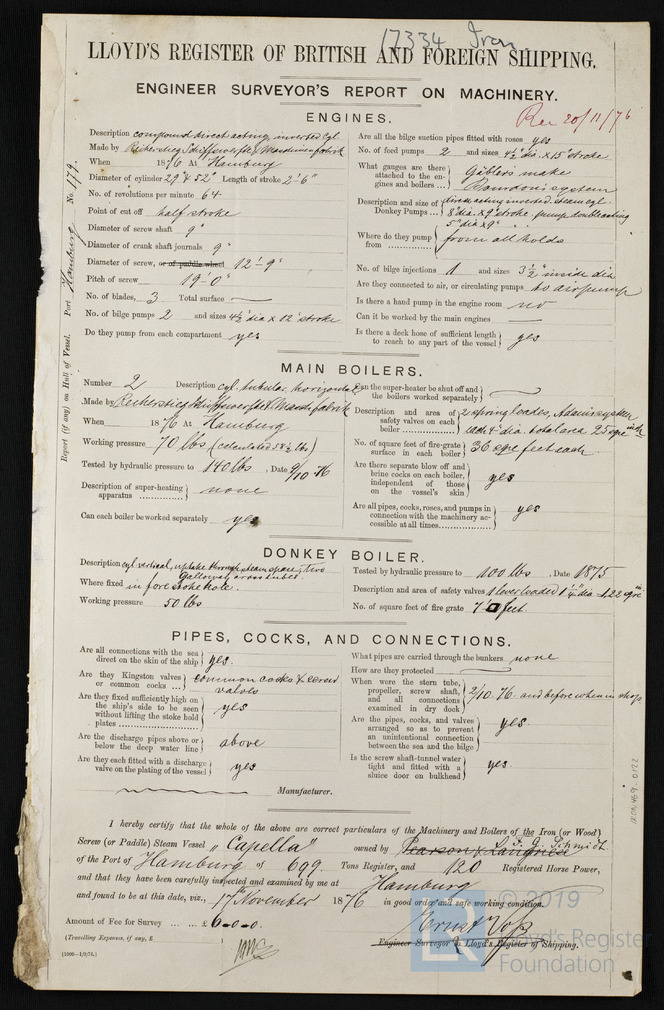 17334 Iron
LLOYD'S REGISTER OF BRITISH AND FOREIGN SHIPPING.
ENGINEER SURVEYOR'S REPORT ON MACHINERY.
Rec 20/11/76
Report (if any) on Hull of Vessel. Port Hamburg No. 179.
ENGINES.
Description compound direct acting, inverted Cyl.
Made by Reiherstieg Schiffswerfte & Maschinenfabrik
When 1876 At Hamburg
Diameter of cylinder 29" & 52" Length of stroke 2'-6"
No. of revolutions per minute 64
Point of cut off half stroke
Diameter of screw shaft 9"
Diameter of crank shaft journals 9"
Diameter of screw, or of paddle wheel 12'-9"
Pitch of screw 19'-0"
No. of blades, 3 Total surface —
No. of bilge pumps 2 and sizes 4½" dia x 12" stroke
Do they pump from each compartment yes
Are all the bilge suction pipes fitted with roses yes
No. of feed pumps 2 and sizes 4½" dia. x 15" stroke
What gauges are there attached to the engines and boilers ... Gäblers make
Bourdons system
Description and size of Donkey Pumps ... direct acting inverted steam cyl.
8" dia x 9" stroke pump double acting
5" dia x 9"
Where do they pump from from all holds
No. of bilge injections 1 and sizes 3½" inside dia
Are they connected to air, or circulating pumps to air pump
Is there a hand pump in the engine room no
Can it be worked by the main engines —
Is there a deck hose of sufficient length to reach to any part of the vessel yes
MAIN BOILERS.
Number 2 Description cyl. tubular, horizontal
Made by Reiherstieg Schiffswerfte & Maschfabrik
When 1876 At Hamburg
Working pressure 70 lbs (calculated 58½ lbs)
Tested by hydraulic pressure to 140 lbs, Date 2/10 76
Description of super-heating apparatus none
Can each boiler be worked separately yes
Can the super-heater be shut off and the boilers worked separately
Description and area of safety valves on each boiler 2 spring loades, Adams system
each 4" dia. total area 25 sqre inch
No. of square feet of fire-grate surface in each boiler 36 sqre feet each
Are there separate blow off and brine cocks on each boiler, independent of those on the vessel's skin yes
Are all pipes, cocks, roses, and pumps in connection with the machinery accessible at all times yes
DONKEY BOILER.
Description cyl. vertical, uptake through steam space, two
Galloway cross tubes.
Where fixed in fore stokehole.
Working pressure 50 lbs
Tested by hydraulic pressure to 100 lbs, Date 1875
Description and area of safety valves 1 lever loaded 1¼" dia 1,22 sqre in
No. of square feet of fire grate 7'0 feet
PIPES, COCKS, AND CONNECTIONS.
Are all connections with the sea direct on the skin of the ship yes.
Are they Kingston valves or common cocks ... common cocks & screw
valves
Are they fixed sufficiently high on the ship's side to be seen without lifting the stoke hold plates yes
Are the discharge pipes above or below the deep water line above
Are they each fitted with a discharge valve on the plating of the vessel yes
What pipes are carried through the bunkers none
How are they protected —
When were the stern tube, propeller, screw shaft, and all connections examined in dry dock 2/10. 76. and before when in shop
Are the pipes, cocks, and valves arranged so as to prevent an unintentional connection between the sea and the bilge yes.
Is the screw shaft-tunnel water tight and fitted with a sluice door on bulkhead yes
Manufacturer.
I hereby certify that the whole of the above are correct particulars of the Machinery and Boilers of the Iron (or Wood)
Screw (or Paddle) Steam Vessel "Capella" owned by Pearson & Langnese L. F. G. Schmidt
of the Port of Hamburg of 699 Tons Register, and 120 Registered Horse Power,
and that they have been carefully inspected and examined by me at Hamburg
and found to be at this date, viz., 17th November 1876 in good order and safe working condition.
Ernst Voß
Amount of Fee for Survey ... ... £6-0-0.
Engineer Surveyor to Lloyd's Register of Shipping.
(Travelling Expenses, if any, £
(1000—1/9/74.)
IRON469-0122
© 2019
LR Lloyd's Register
Foundation